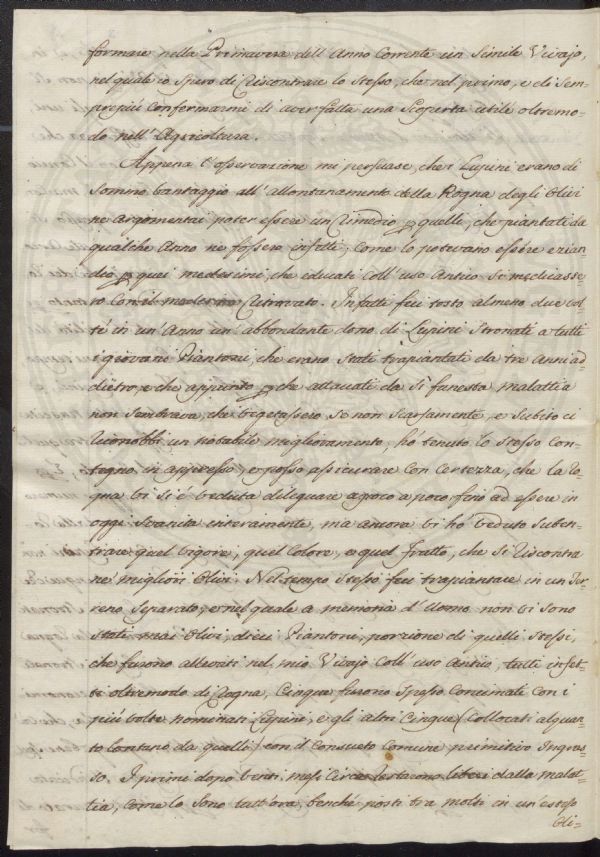 formare nella Primavera dell'Anno Corrente un Simile Vivajo,
nel quale io spero di Riscontrare lo Stesso, che nel primo, e di Sem-
prepiù Confermarmi di aver fatta una Scoperta utile oltremo-
do nell'Agricoltura.
Appena l'osservazione mi persuase, che i Lupini erano di
Sommo vantaggio all'allontanamento della Rogna degli Olivi
ne argomentai poter essere un Rimedio p quelli, che piantati da
qualche Anno ne fossero infetti, Come lo potevano essere ezian-
dio p quei medesimi, che educati coll'uso Antico Si
ro Con il moderno Ritrovato. Infatti feci tosto almeno due vol-
te in un'Anno un'abbondante dono di Lupini Stronati a tutti
i giovani Piantoni, che erano Stati trapiantati da tre Anni ad-
dietro, e che appunto p che attaccati da Sì funesta malattia
non Sembrava, che vegetassero Se non Scarsamente, e Subito ci
Riconobbi un notabile miglioramento, hò tenuto lo Stesso Con-
tegno in appresso, e posso assicurare Con Certezza, che la Ro-
gna vi si è veduta dileguare a poco a poco fino ad essere in
oggi Svanita interamente, ma ancora vi hò veduto Suben-
trare quel Vigore, quel Colore, e quel frutto, che Si Riscontra
ne' migliori Olivi. Nel tempo Stesso feci trapiantare in un Ter-
reno Separato, e nel quale a memoria d'Uomo non vi Sono
Stati mai Olivi, dieci Piantoni, porzione di quelli Stessi,
che furono allevati nel mio Vivajo Coll'uso Antico, tutti infet-
ti oltremodo di Rogna, Cinque furono Spesso Concimati Con i
più volte nominati Lupini, e gli altri Cinque (Collocati alquan-
to lontano da quelli) con il Consueto Comune primitivo Ingras-
so. I primi dopo venti mesi Circa restarono liberi dalla malat-
tia, come lo Sono tutt'ora, benchè posti tra molti in un'esteso
Oli-